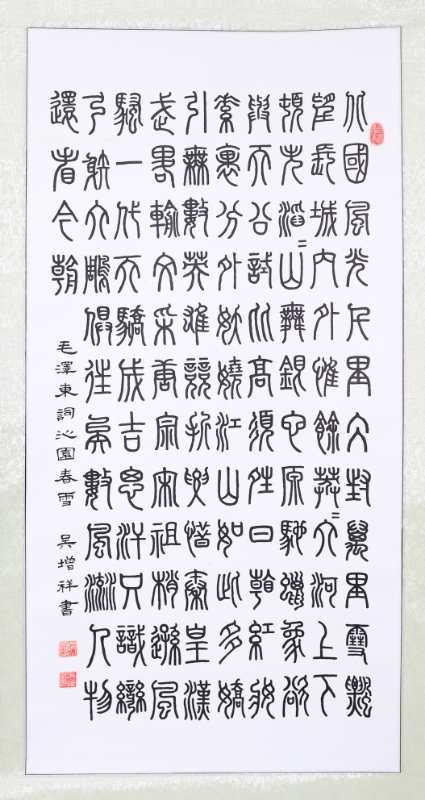 北國風光千里冰封萬里雪飄
望長城內外惟餘莽〻大河上下
頓失滔〻山舞銀蛇原馳蠟象欲
與天公試比高須晴日看紅妝
素裹分外妖嬈江山如此多嬌
引無數英雄競折腰惜秦皇漢
武略輸文采唐宗宋祖稍遜風
騷一代天驕成吉思汗只識彎
弓射大雕俱往矣數風流人物
還看今朝
毛澤東詞沁園春雪 吳增祥書